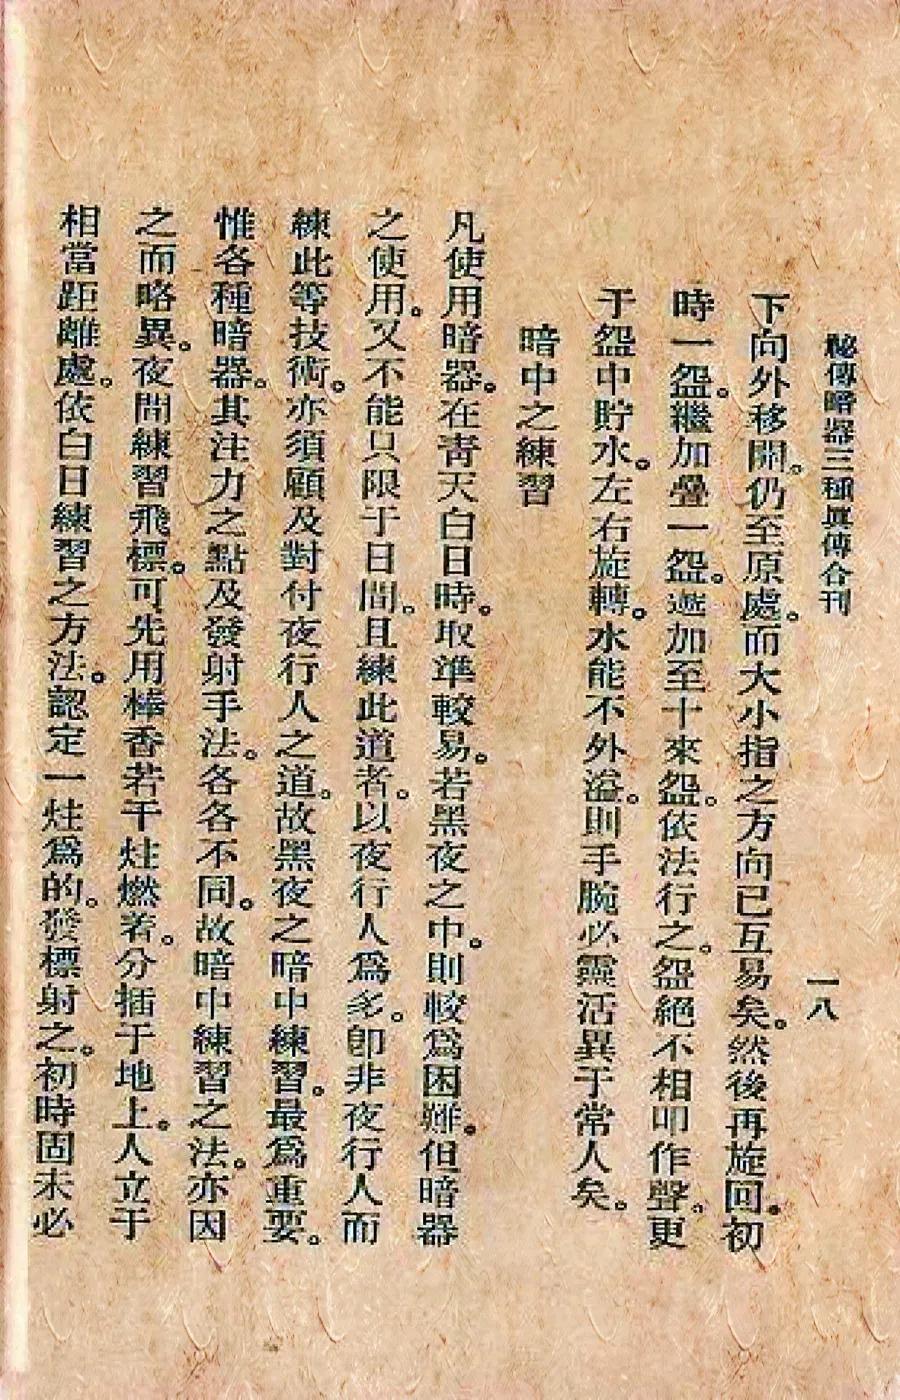 秘傳暗器三種眞傳合刊
一八
下向外移開。仍至原處。而大小指之方向已互易矣。然後再旋回。初
時一盌。繼加疊一盌。遊加至十來盌。依法行之。盌絕不相叩作聲。更
于盌中貯水。左右旋轉。水能不外溢。則手腕必靈活異于常人矣。
暗中之練習
凡使用暗器。在靑天白日時。取準較易。若黑夜之中。則較爲困難。但暗器
之使用。又不能只限于日間。且練此道者。以夜行人爲多。卽非夜行人而
練此等技術。亦須顧及對付夜行人之道。故黑夜之暗中練習。最爲重要。
惟各種暗器。其注力之點及發射手法。各各不同。故暗中練習之法。亦因
之而略異。夜間練習飛標。可先用棒香若干炷燃着。分插于地上。人立于
相當距離處。依白日練習之方法。認定一炷爲的。發標射之。初時固未必